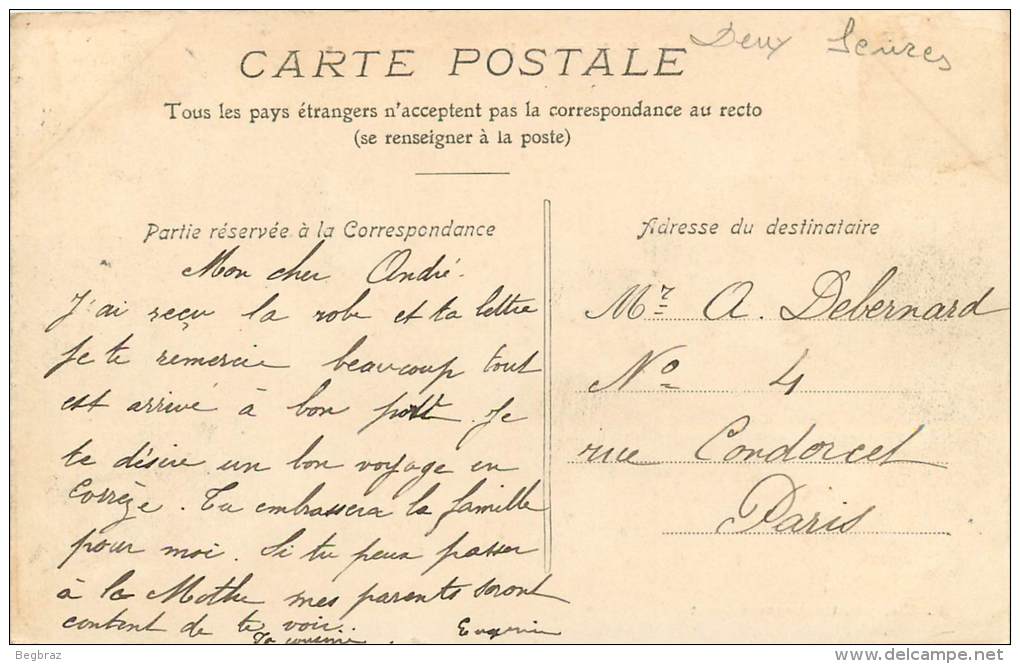 Deux Sevres
CARTE POSTALE
Tous les pays étrangers n'acceptent pas la correspondance au recto
(se renseigner à la poste)
Partie réservée à la Correspondance
Mon cher André.
J'ai reçu la robe et ta lettre
Je te remercie beaucoup tout
est arrivé à bon port. Je
te désire un bon voyage en
Corrèze. Tu embrassera la famille
pour moi. Si tu peux passer
à la Mothe mes parents seront
content de te voir.
Ta cousine. Eugenie
Adresse du destinataire
Mr A. Debernard
No 4
rue Condorcet
Paris
Begbraz
http://www.delcampe.net